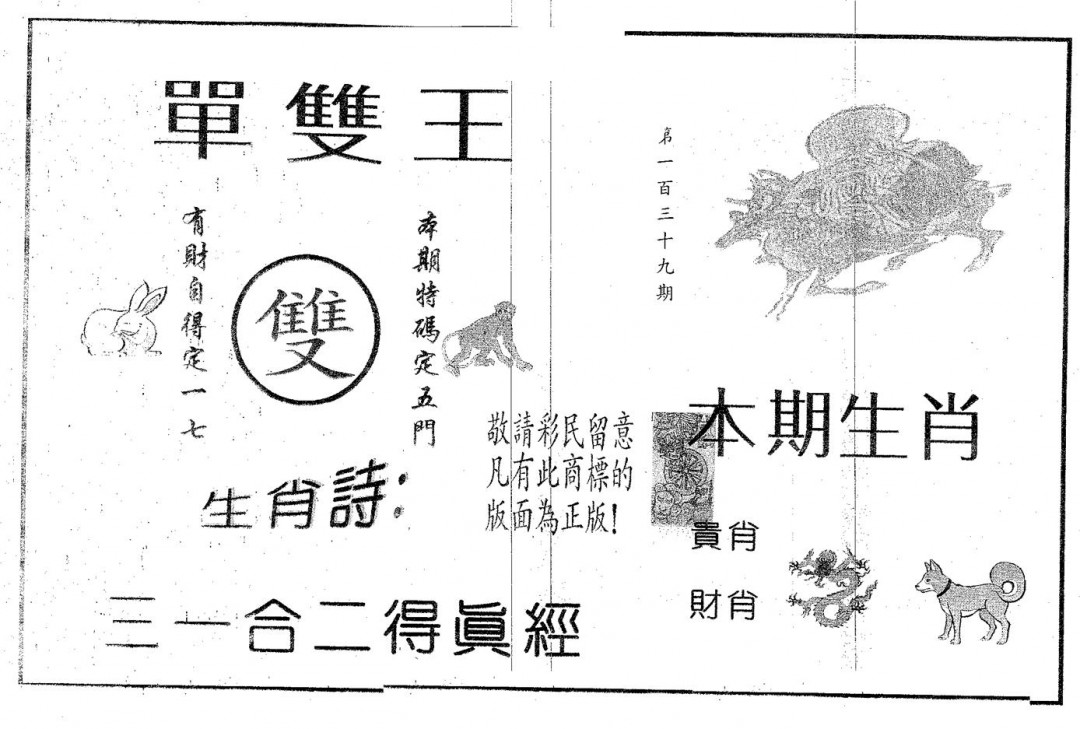 單雙王
第一百三十九期
本期特碼定五門
雙
有財自得定一七
敬請彩民留意
凡有此商標的
版面為正版!
本期生肖
生肖詩:
貴肖
財肖
三一合二得眞經